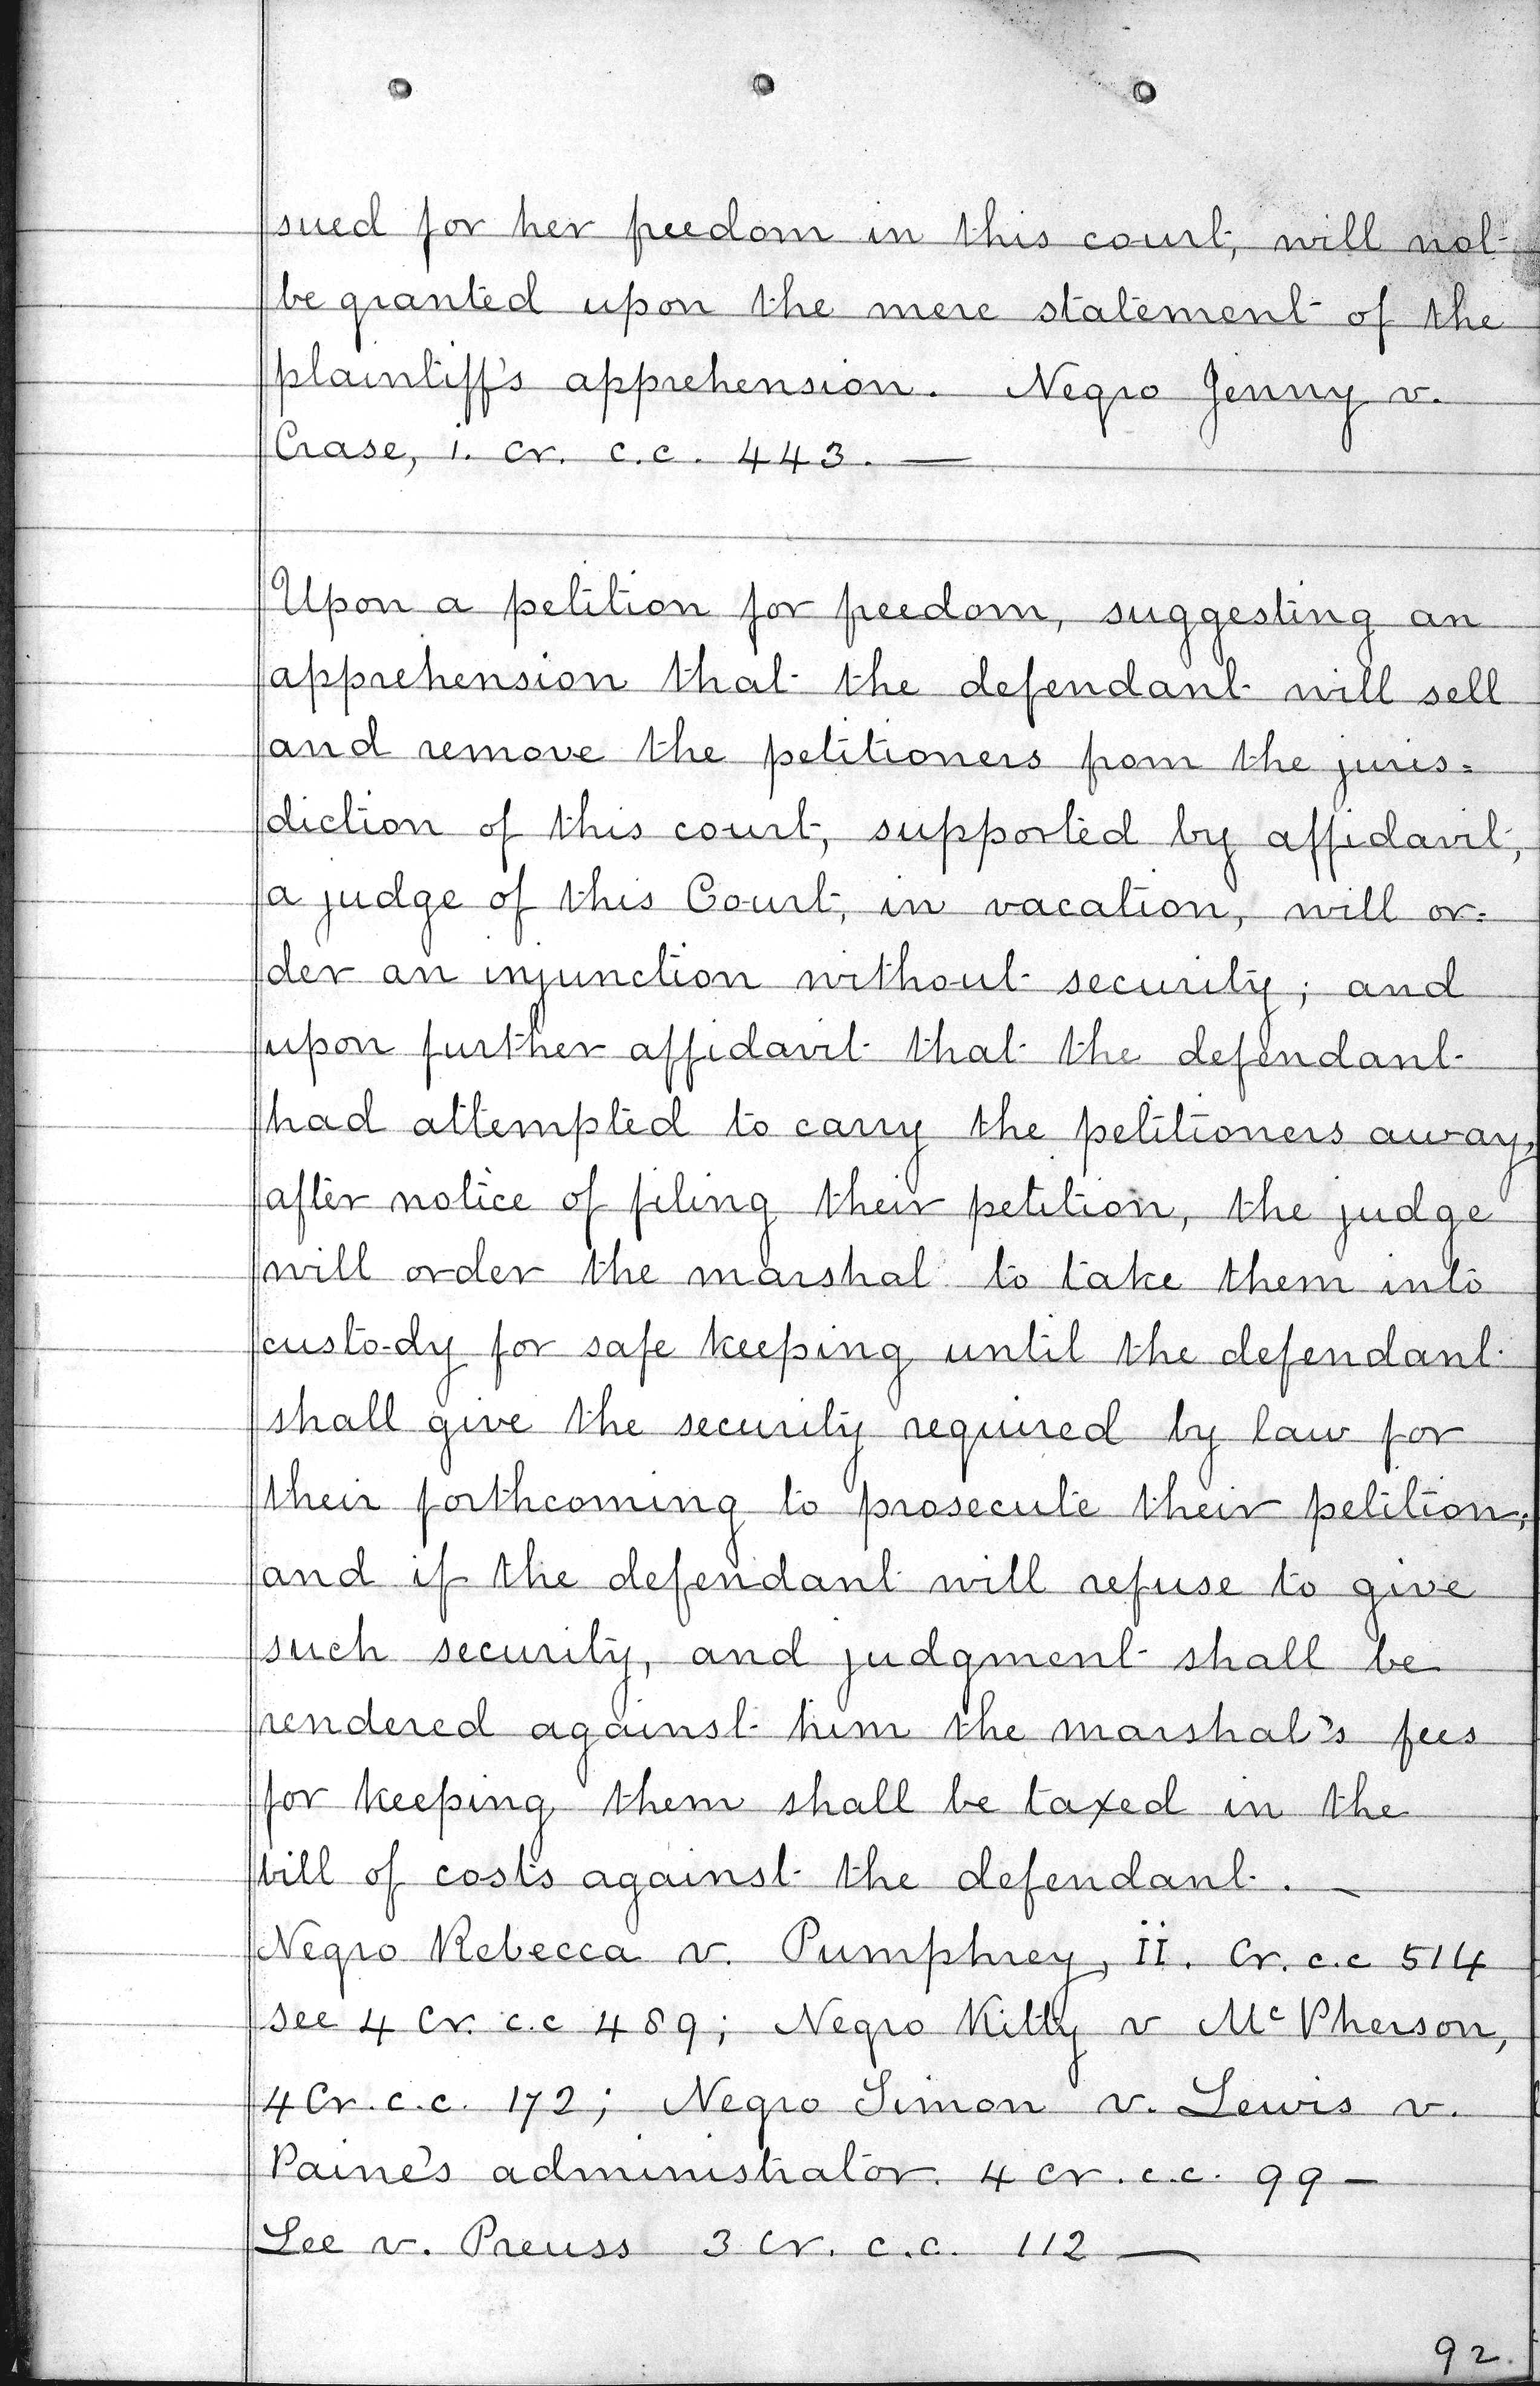 sued for her freedom in this court, will not
be granted upon the mere statement of the
plaintiff's apprehension. Negro Jenny v.
Crase, i. Cr. c.c. 443. —
Upon a petition for freedom, suggesting an
apprehension that the defendant will sell
and remove the petitioners from the juris=
diction of this court, supported by affidavit,
a judge of this Court, in vacation, will or=
der an injunction without security; and
upon further affidavit that the defendant
had attempted to carry the petitioners away,
after notice of filing their petition, the judge
will order the marshal to take them into
custody for safe keeping until the defendant
shall give the security required by law for
their forthcoming to prosecute their petition;
and if the defendant will refuse to give
such security, and judgment shall be
rendered against him the marshal's fees
for keeping them shall be taxed in the
bill of costs against the defendant. —
Negro Rebecca v. Pumphrey, ii. Cr. c.c 514
see 4 Cr. c.c 489; Negro Kitty v McPherson,
4 Cr. c.c. 172; Negro Simon v. Lewis v.
Paine's administrator. 4 Cr. c.c. 99 —
Lee v. Preuss 3 Cr. c.c. 112 —
92.